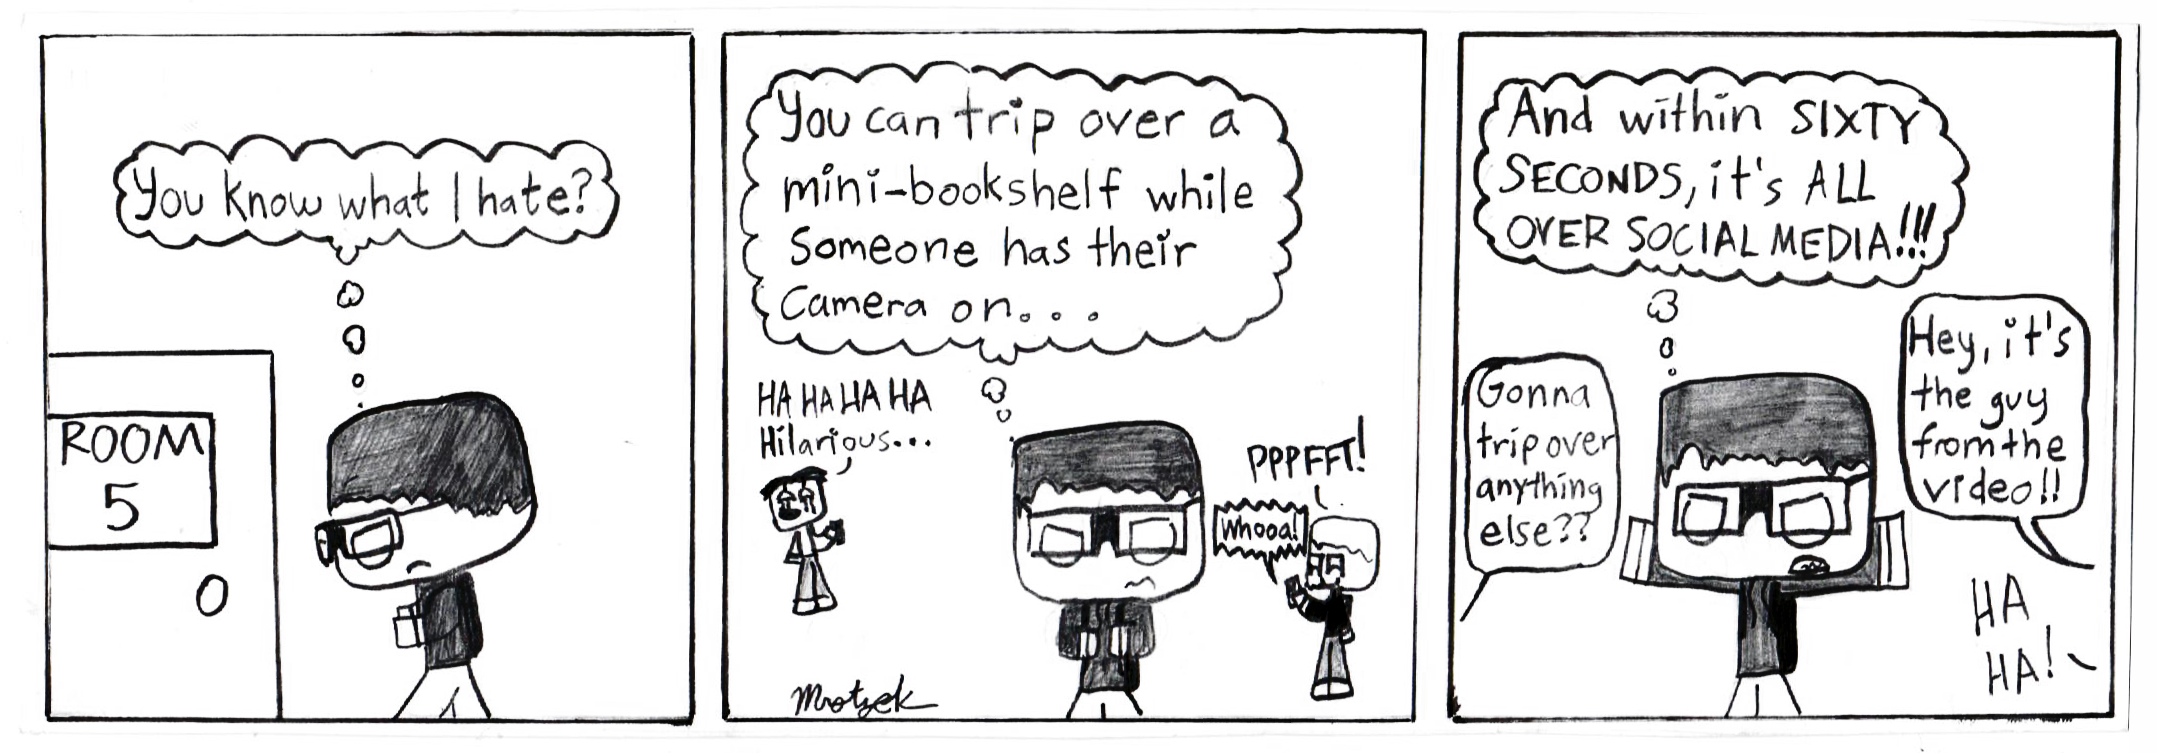 You know what I hate?
ROOM
5
You can trip over a
mini-bookshelf while
Someone has their
Camera on...
HA HA HA HA
Hilarious...
PPPFFT!
Whooa!
Mrotzek
And within SIXTY
SECONDS, it's ALL
OVER SOCIAL MEDIA!!!
Gonna
trip over
anything
else??
Hey, it's
the guy
from the
video!!
HA
HA!